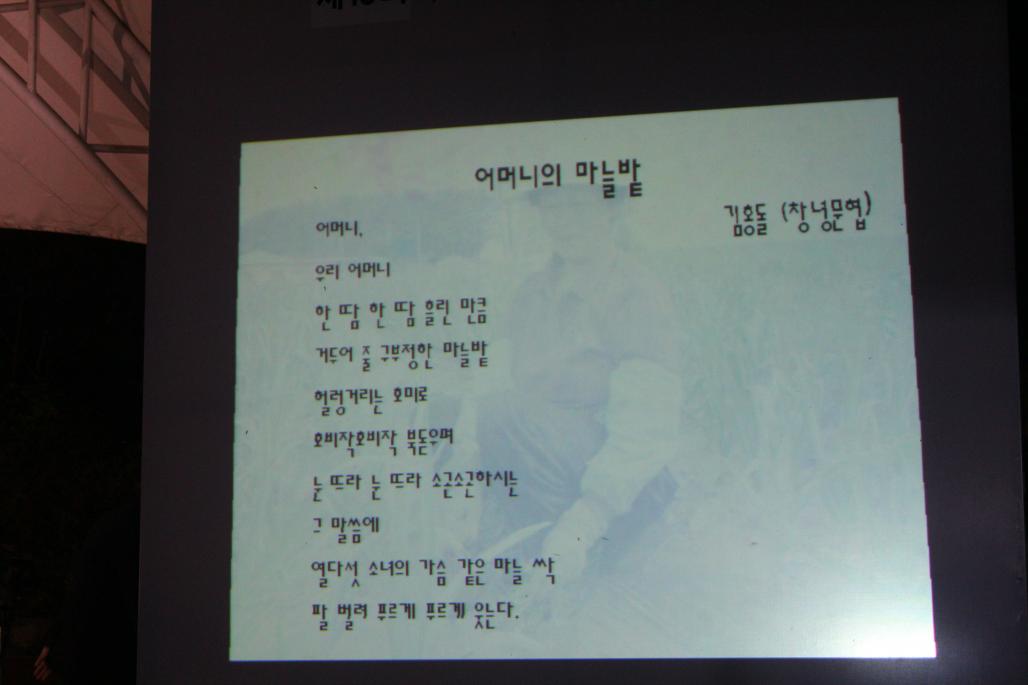 어머니의 마늘밭
김호돌 (창녕문협)
어머니,
우리 어머니
한 땀 한 땀 흘린 만큼
거두어 줄 구부정한 마늘밭
헐렁거리는 호미로
호비작호비작 북돋우며
눈 뜨라 눈 뜨라 소근소근하시는
그 말씀에
열다섯 소녀의 가슴 같은 마늘 싹
팔 벌려 푸르게 푸르게 웃는다.